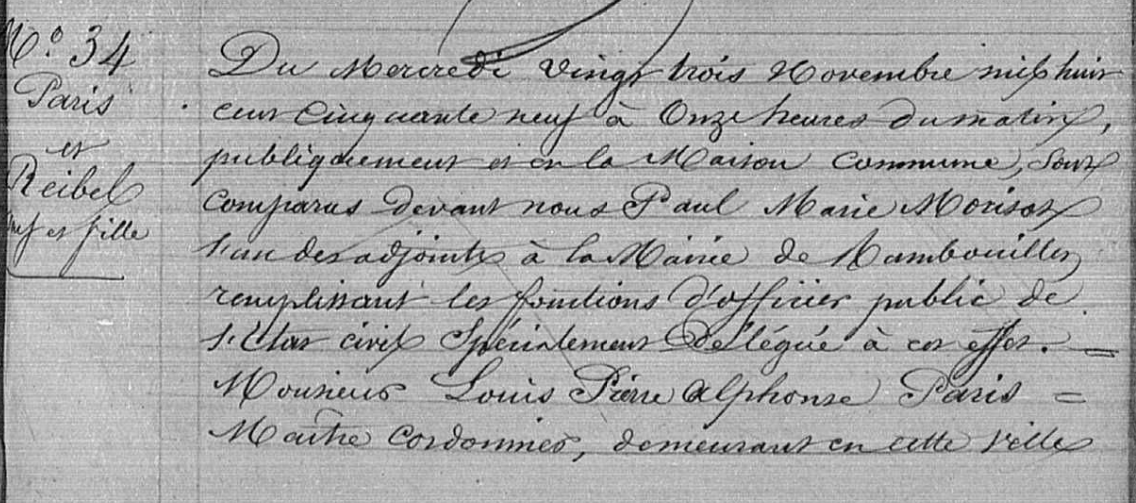 N.º 34
Paris
et
Reibel
veuf et fille
Du Mercredi Vingt trois Novembre mil huit
cent cinquante neuf à Onze heures du matin,
publiquement et en la Maison commune, sont
comparus devant nous Paul Marie Morisot
l'un des adjoints à la Mairie de Rambouillet
remplissant les fonctions d'officier public de
l'Etat civil Spécialement Délégué à cet effet. =
Monsieur Louis Pierre Alphonse Paris =
Maître Cordonnier, demeurant en cette Ville